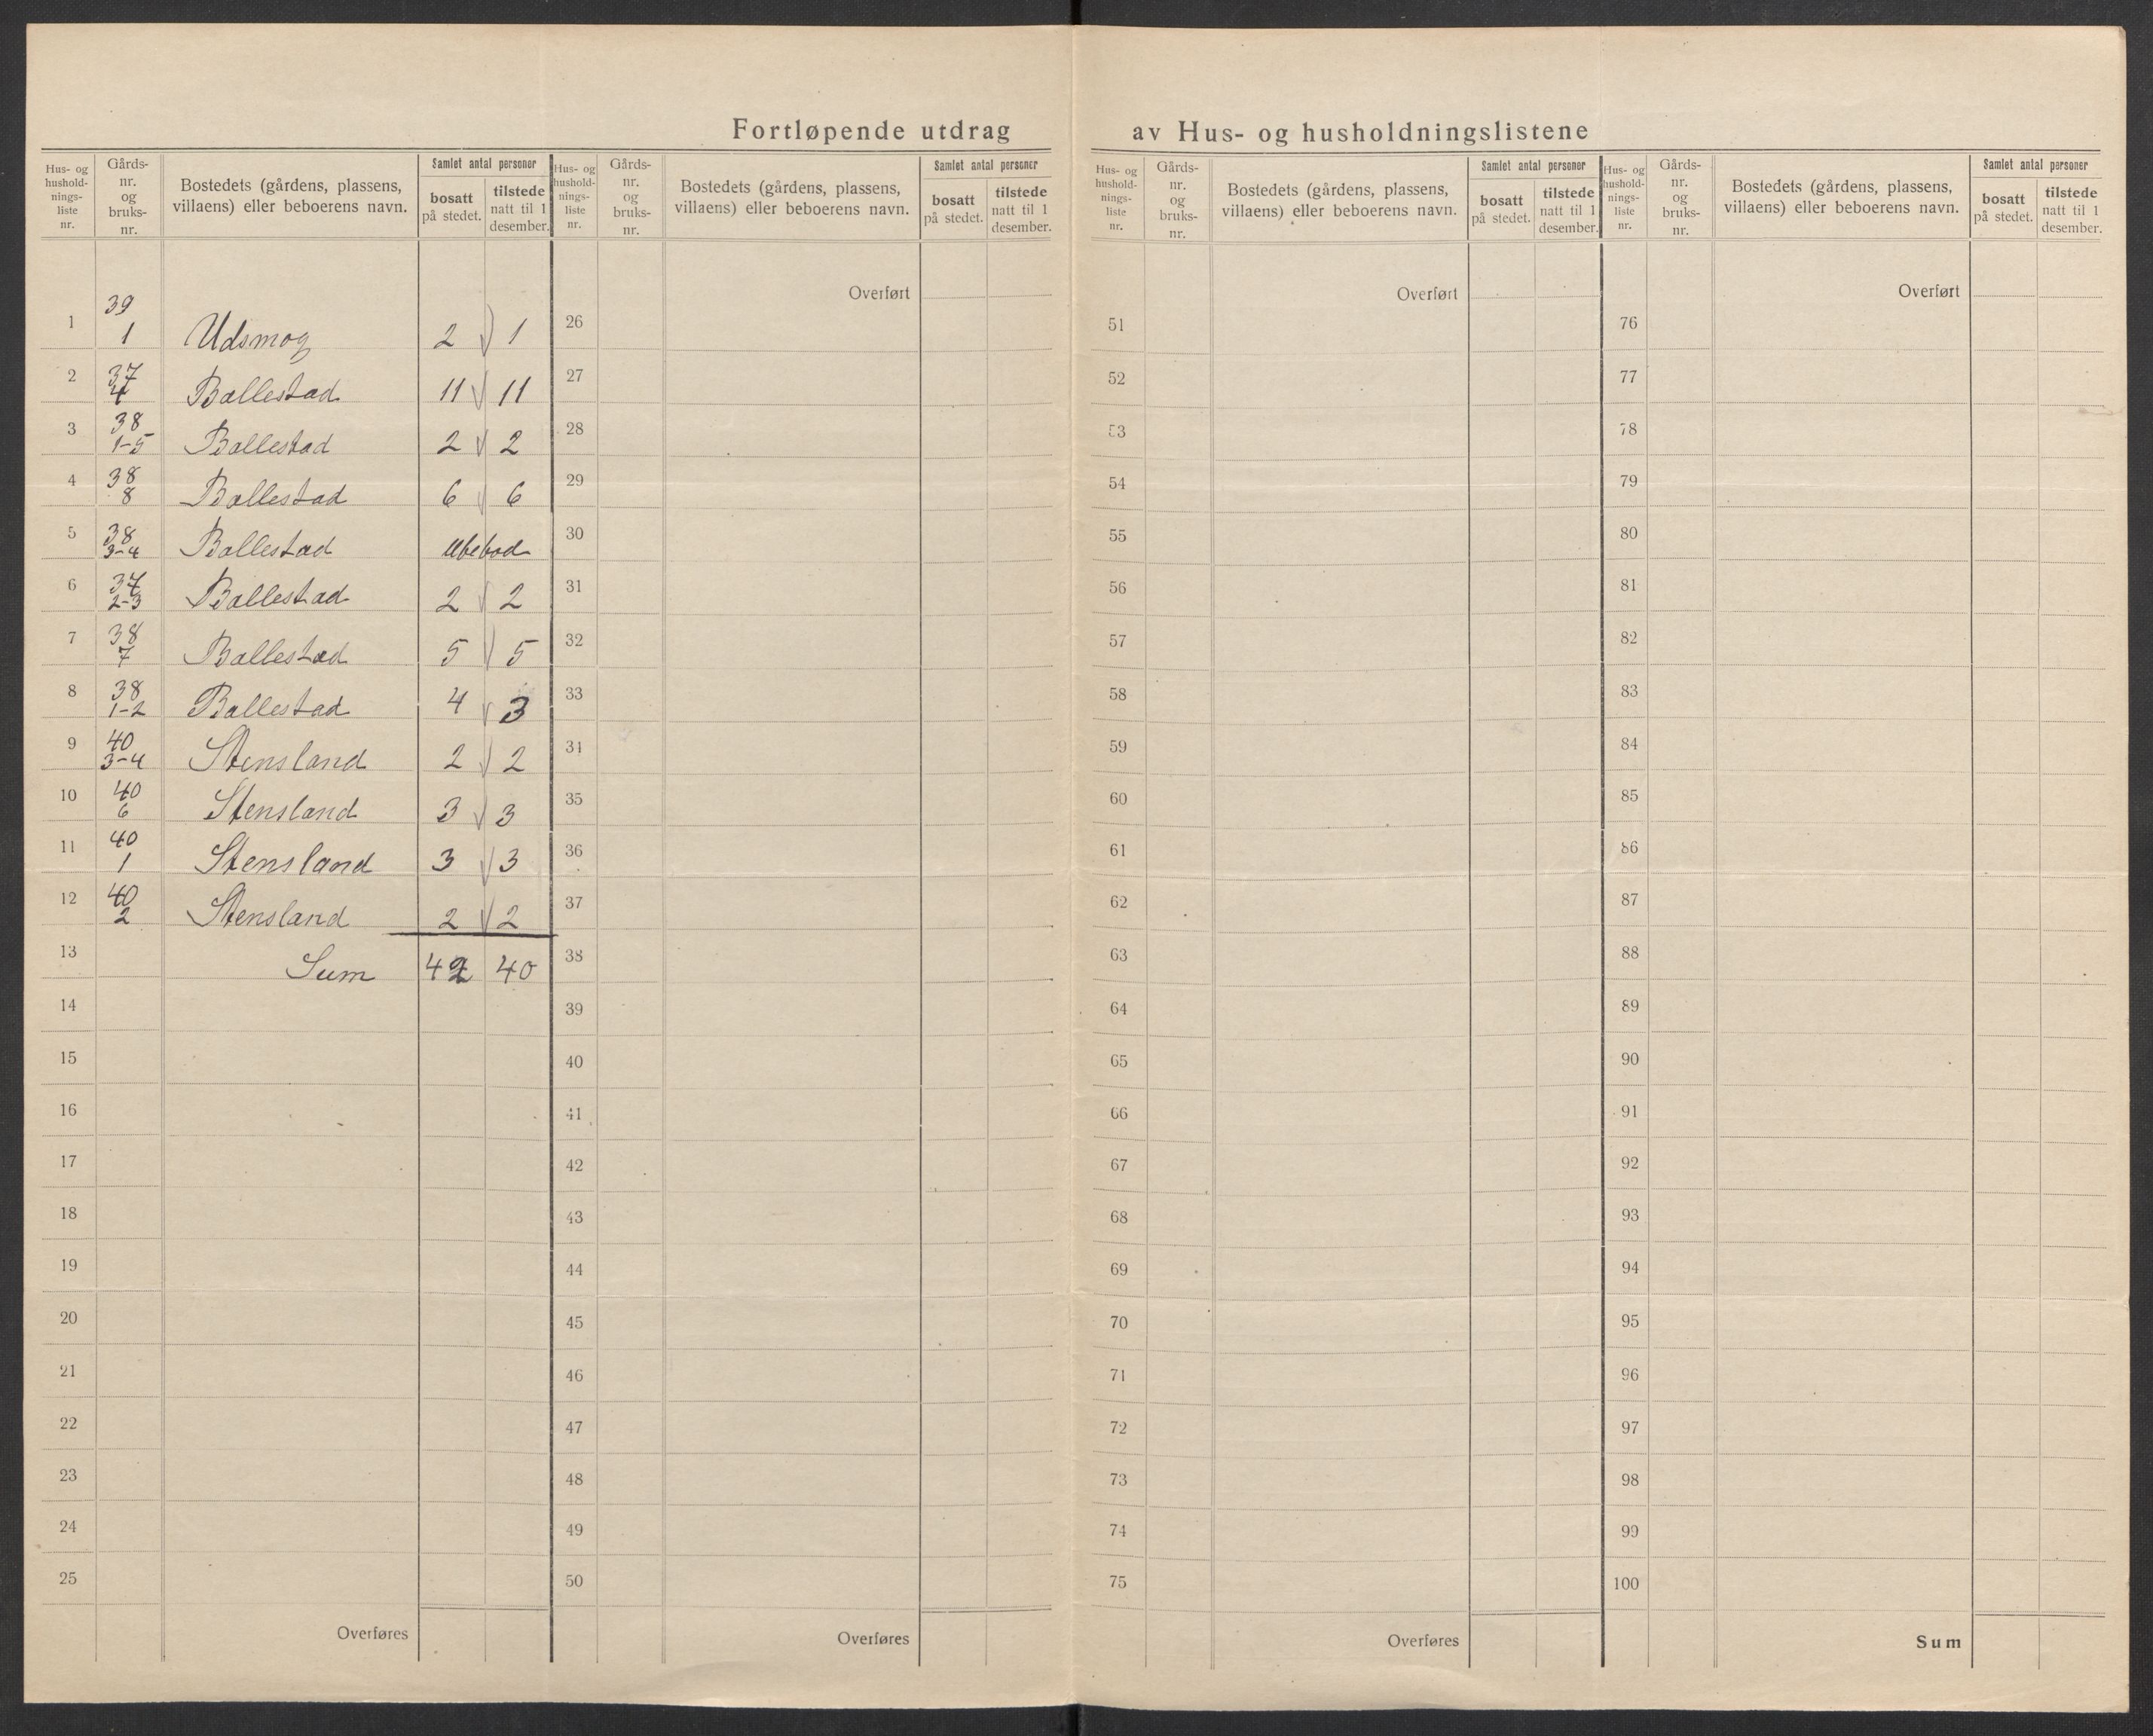 Fortløpende utdrag av Hus- og husholdningslistene
Hus- og hushold- nings- liste nr. | Gårds- nr. og bruks- nr. | Bostedets (gårdens, plassens, villaens) eller beboerens navn. | Samlet antal personer | bosatt på stedet. | tilstede natt til 1 desember.
1 | 39 1 | Udsmog | 2 | 1
2 | 37 4 | Ballestad | 11 | 11
3 | 38 1-5 | Ballestad | 2 | 2
4 | 38 8 | Ballestad | 6 | 6
5 | 38 3-4 | Ballestad | Ubebod
6 | 37 2-3 | Ballestad | 2 | 2
7 | 38 7 | Ballestad | 5 | 5
8 | 38 1-2 | Ballestad | 4 | 3
9 | 40 3-4 | Stensland | 2 | 2
10 | 40 6 | Stensland | 3 | 3
11 | 40 1 | Stensland | 3 | 3
12 | 40 2 | Stensland | 2 | 2
13 | Sum | 42 | 40
14
15
16
17
18
19
20
21
22
23
24
25
Overføres
Hus- og hushold- nings- liste nr. | Gårds- nr. og bruks- nr. | Bostedets (gårdens, plassens, villaens) eller beboerens navn. | Samlet antal personer | bosatt på stedet. | tilstede natt til 1 desember.
Overført
26
27
28
29
30
31
32
33
31
35
36
37
38
39
40
41
42
43
44
45
46
47
48
49
50
Overføres
Hus- og hushold- nings- liste nr. | Gårds- nr. og bruks- nr. | Bostedets (gårdens, plassens, villaens) eller beboerens navn. | Samlet antal personer | bosatt på stedet. | tilstede natt til 1 desember.
Overført
51
52
53
54
55
56
57
58
59
60
61
62
63
64
65
66
67
68
69
70
71
72
73
74
75
Overføres
Hus- og hushold- nings- liste nr. | Gårds- nr. og bruks- nr. | Bostedets (gårdens, plassens, villaens) eller beboerens navn. | Samlet antal personer | bosatt på stedet. | tilstede natt til 1 desember.
Overført
76
77
78
79
80
81
82
83
84
85
86
87
88
89
90
91
92
93
94
95
96
97
98
99
100
Sum